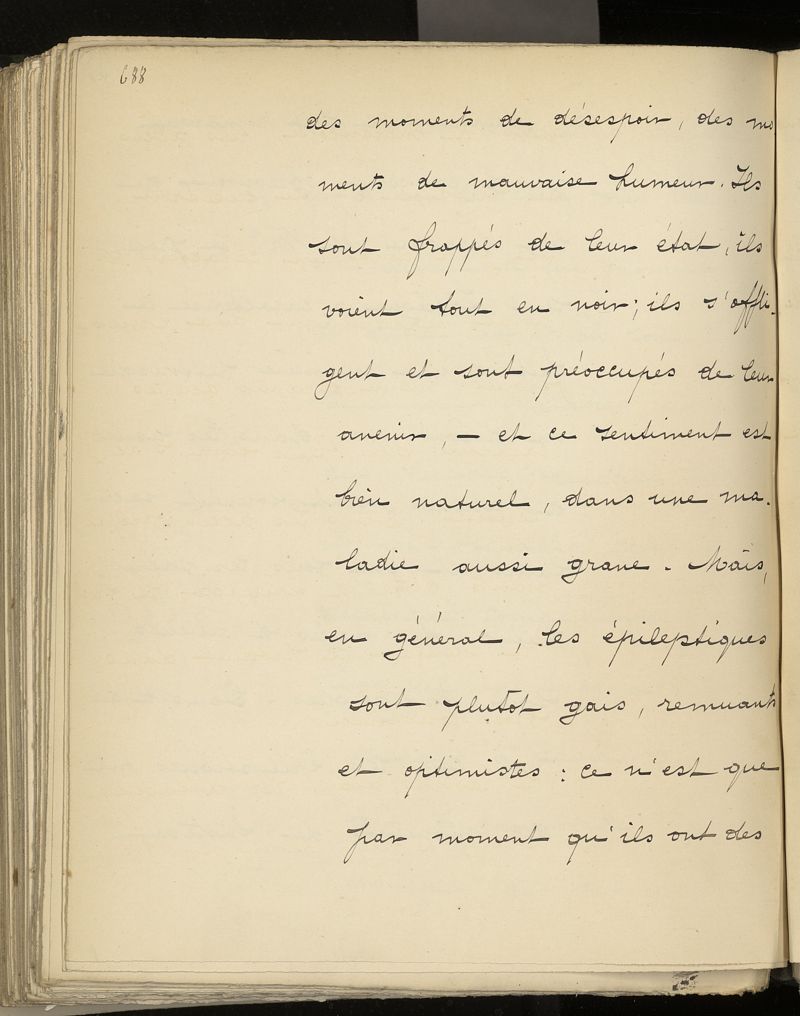 688
des moments de désespoir, des mo
ments de mauvaise humeur. Ils
sont frappés de leur état, ils
voient tout en noir; ils s'affli-
gent et sont préoccupés de leur
avenir, — et ce sentiment est
bien naturel, dans une ma-
ladie aussi grave. Mais,
en général, les épileptiques
sont plutôt gais, remuants
et optimistes : ce n'est que
par moment qu'ils ont des